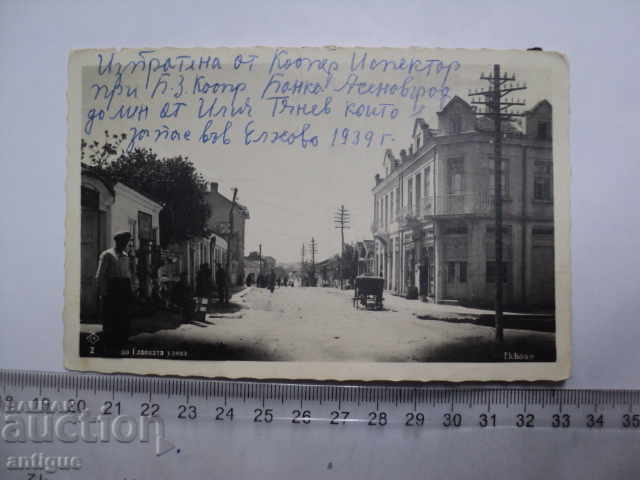 Изпратена от Коопер Испектор
при Б.З. Коопр Банка Асеновград
до мен от Илия Тянев които
запас във Елхово 1939 г
2
Главната улица
19 20 21 22 23 24 25 26 27 28 29 30 31 32 33 34 35
BALKAN
auction
antique